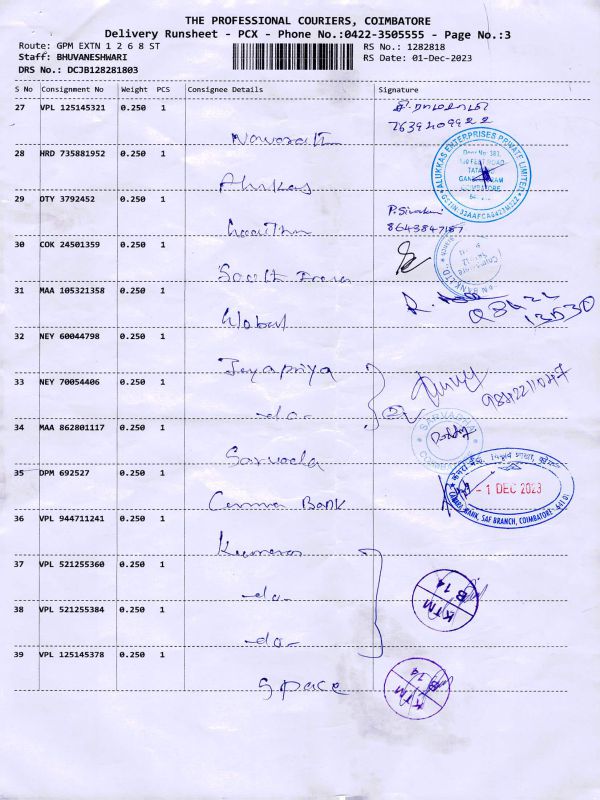 THE PROFESSIONAL COURIERS, COIMBATORE
Delivery Runsheet - PCX - Phone No.:0422-3505555 - Page No.:3
Route: GPM EXTN 1 2 6 8 ST
RS No.: 1282818
Staff: BHUVANESHWARI
RS Date: 01-Dec-2023
DRS No.: DCJB128281803
S No Consignment No Weight PCS Consignee Details Signature
27 VPL 125145321 0.250 1
28 HRD 735881952 0.250 1
ALUKKAS ENTERPRISES PRIVATE LIMITED
COIMBATORE
Alukkas
29 DTY 3792452 0.250 1
P. Sivakami
8643847187
30 COK 24501359 0.250 1
South India
31 MAA 105321358 0.250 1
98422
13030
Global
32 NEY 60044798 0.250 1
Jeyapriya
33 NEY 70054406 0.250 1
9842211047
-do-
34 MAA 862801117 0.250 1
SARVADA
Sarvada
35 DPM 692527 0.250 1
- 1 DEC 2023
CANARA BANK, SAF BRANCH, COIMBATORE - 641 01
Canara Bank
36 VPL 944711241 0.250 1
Kumaran
37 VPL 521255360 0.250 1
-do-
KTM
B 14
38 VPL 521255384 0.250 1
-do-
39 VPL 125145378 0.250 1
KTM
B 14
Space